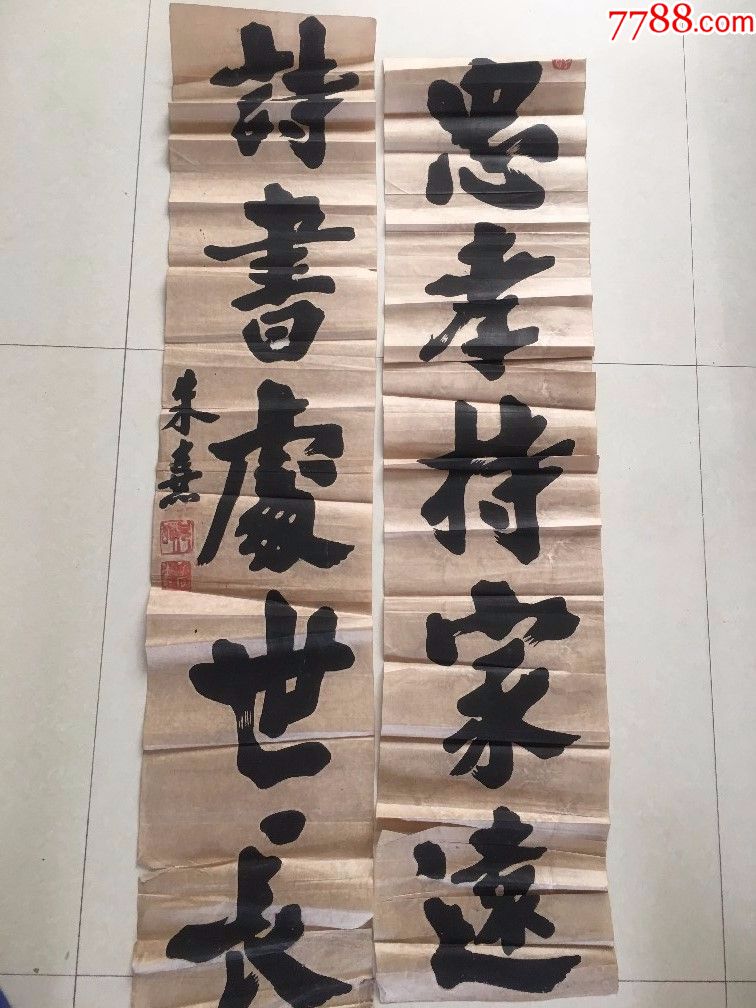 7788.com
忠孝持家遠
詩書處世長
朱熹